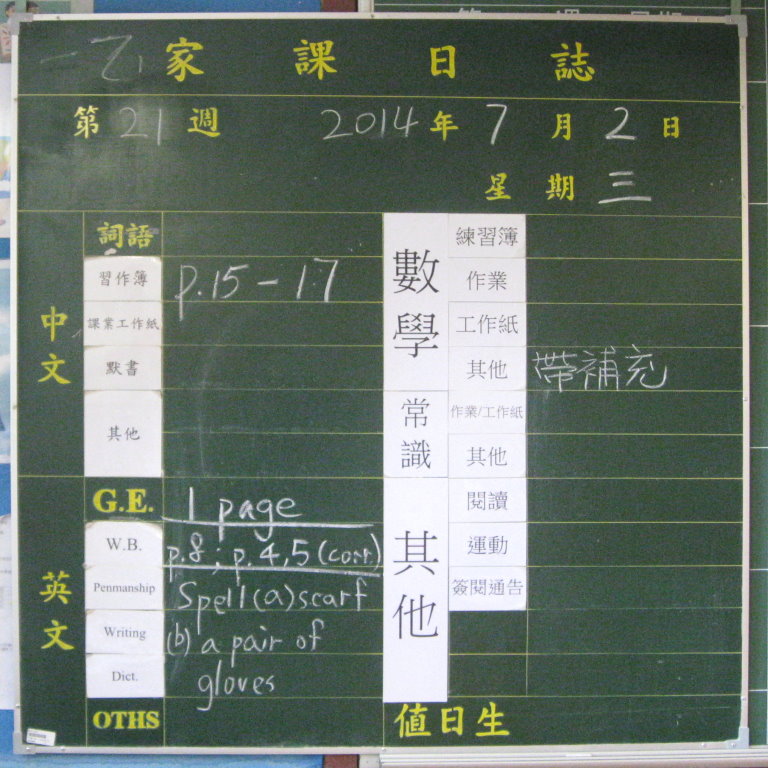 一乙 家課日誌
第21週 2014年7月2日
星期三
中文
詞語
習作簿 p.15-17
課業工作紙
默書
其他
英文
G.E. 1 page
W.B. p.8; p.4,5 (corr.)
Penmanship Spell (a) scarf
Writing (b) a pair of
Dict. gloves
OTHS
數學
練習簿
作業
工作紙
其他 帶補充
常識
作業/工作紙
其他
其他
閱讀
運動
簽閱通告
值日生